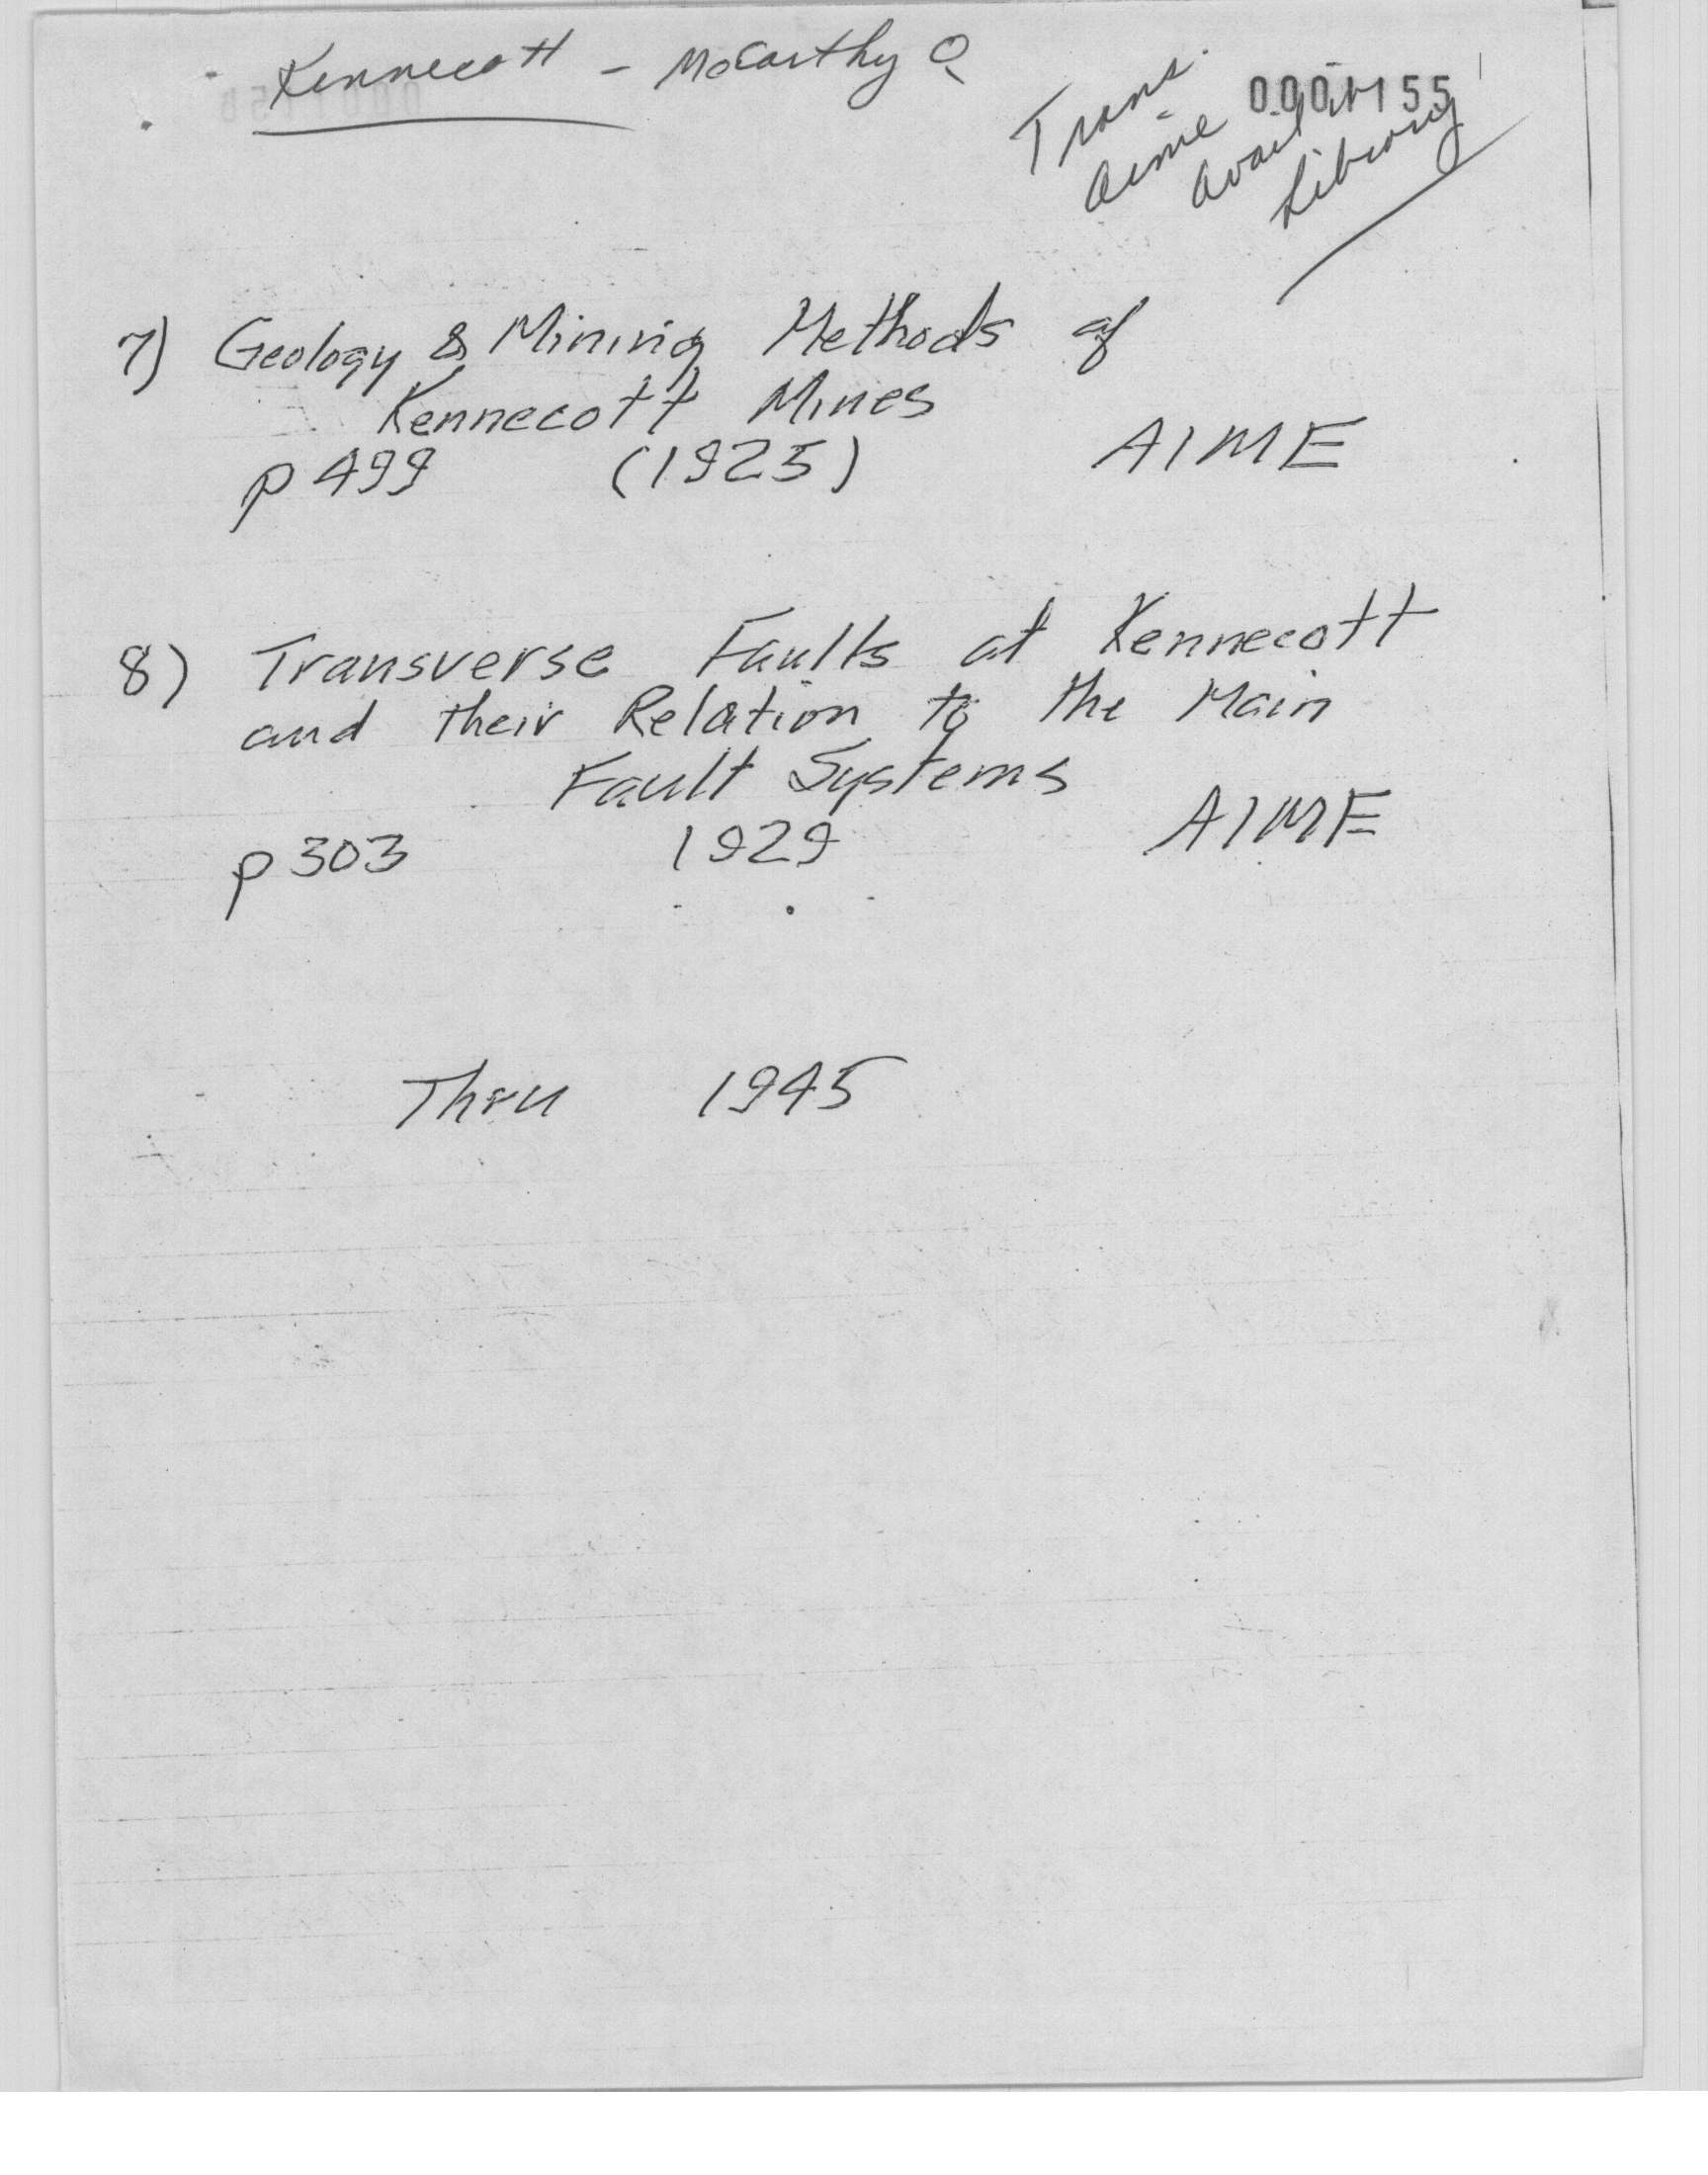 Kennecott - McCarthy Q
Trans.
aime
avail in
Library
7) Geology & Mining Methods of
Kennecott Mines
p 499 (1925) AIME
8) Transverse Faults at Kennecott
and their Relation to the Main
Fault Systems
p 303 1929 AIME
Thru 1945